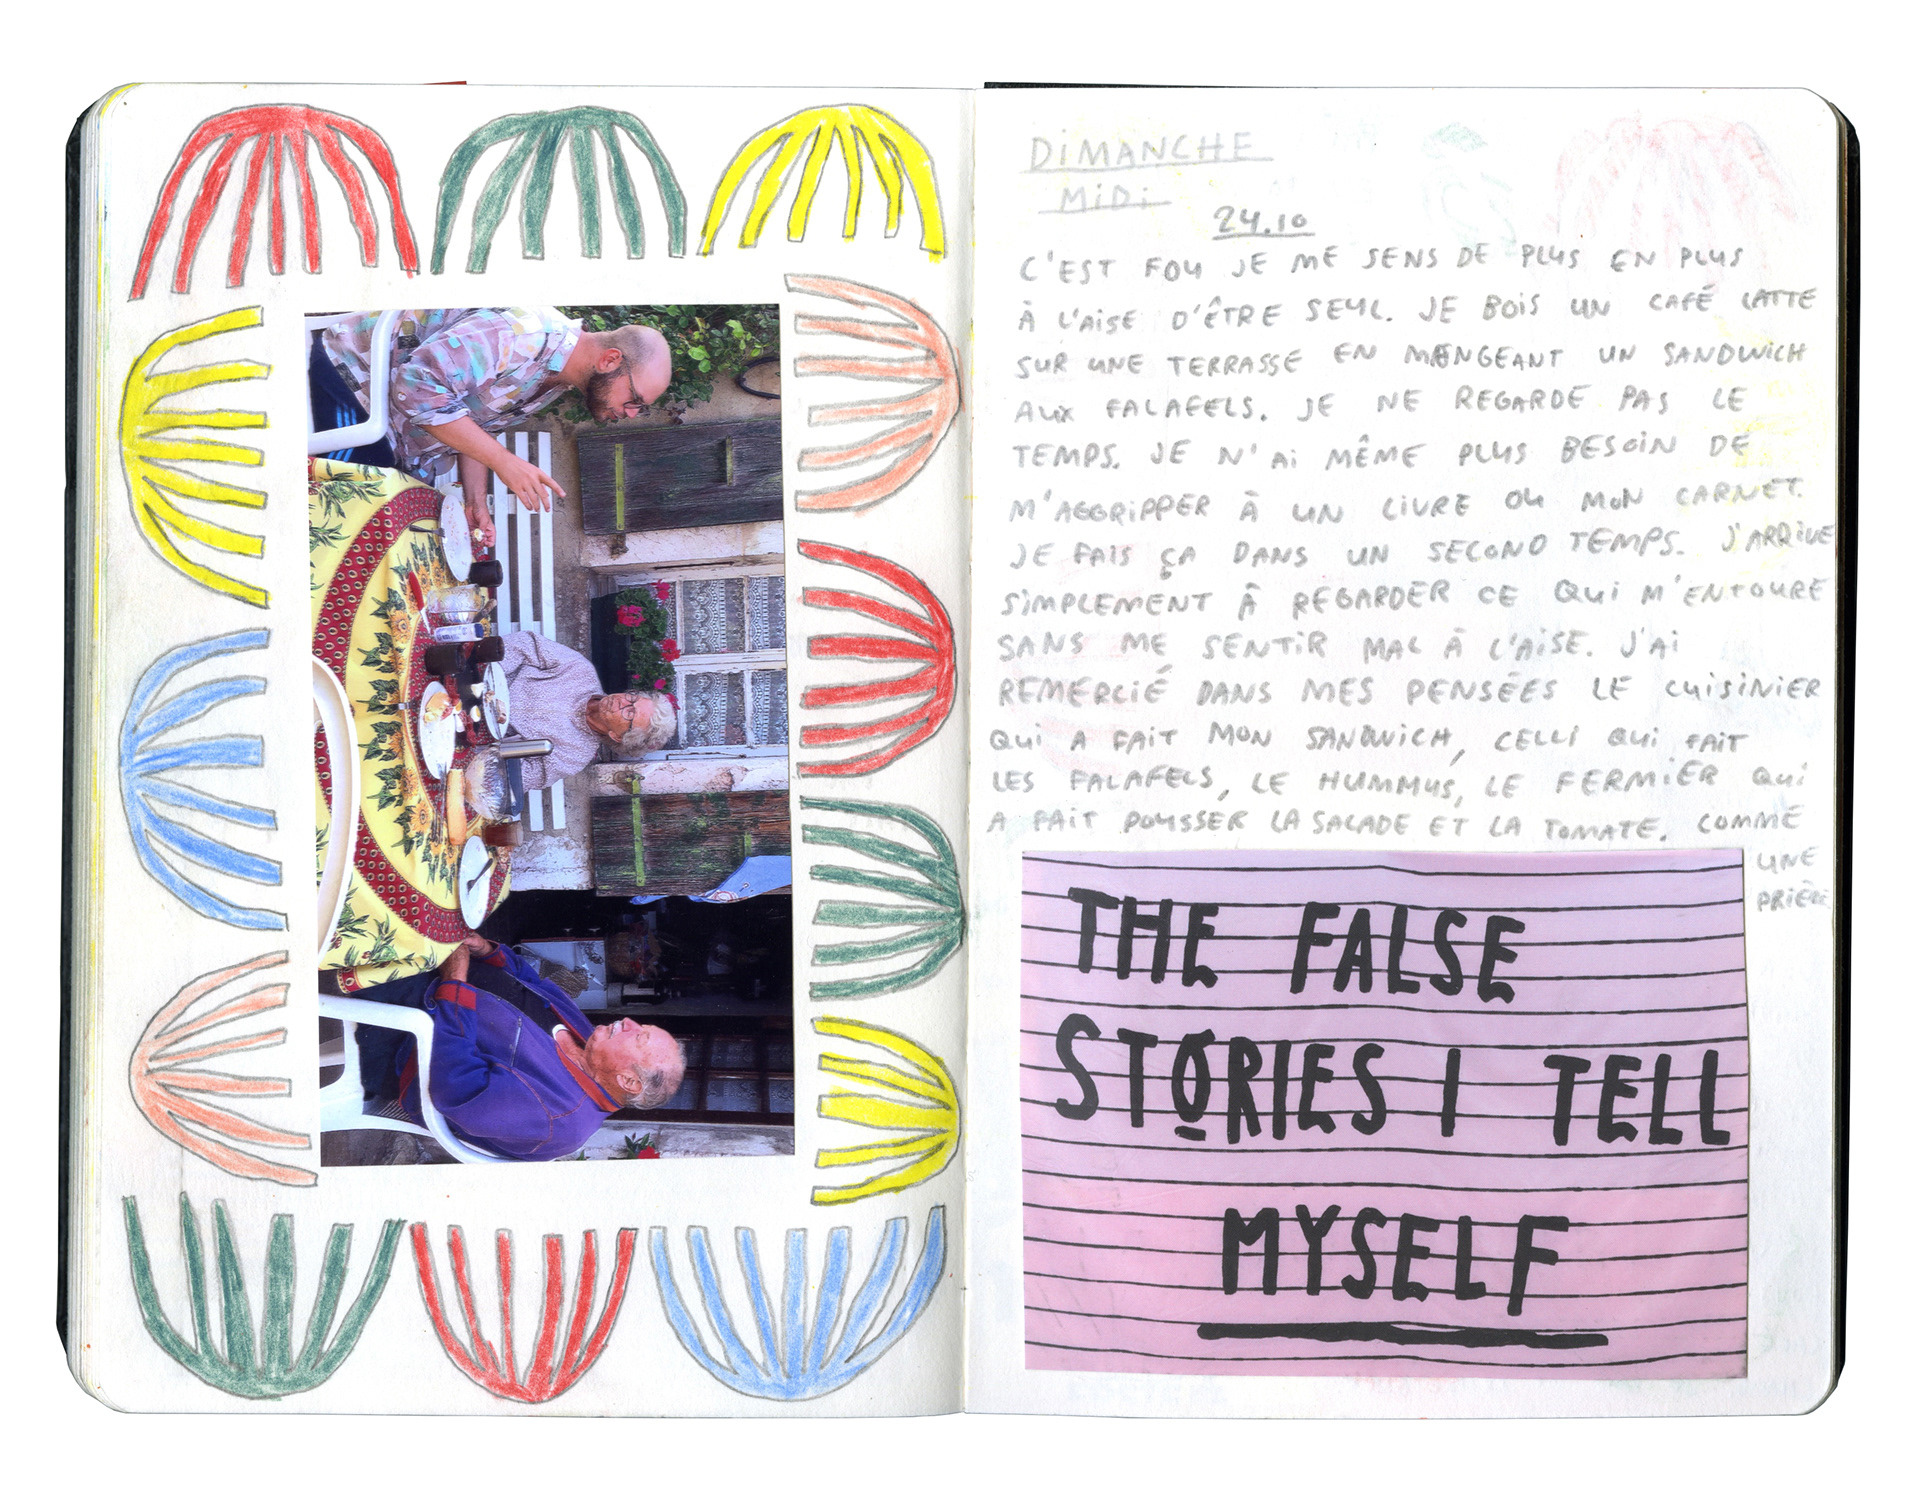 DIMANCHE
MIDI
24.10
C'EST FOU JE ME SENS DE PLUS EN PLUS
À L'AISE D'ÊTRE SEUL. JE BOIS UN CAFÉ LATTE
SUR UNE TERRASSE EN MANGEANT UN SANDWICH
AUX FALAFELS. JE NE REGARDE PAS LE
TEMPS. JE N'AI MÊME PLUS BESOIN DE
M'AGGRIPPER À UN LIVRE OU MON CARNET.
JE FAIS ÇA DANS UN SECOND TEMPS. J'ARRIVE
SIMPLEMENT À REGARDER CE QUI M'ENTOURE
SANS ME SENTIR MAL À L'AISE. J'AI
REMERCIÉ DANS MES PENSÉES LE CUISINIER
QUI A FAIT MON SANDWICH, CELUI QUI FAIT
LES FALAFELS, LE HUMMUS, LE FERMIER QUI
A FAIT POUSSER LA SALADE ET LA TOMATE. COMME
UNE
PRIÈRE
THE FALSE
STORIES I TELL
MYSELF